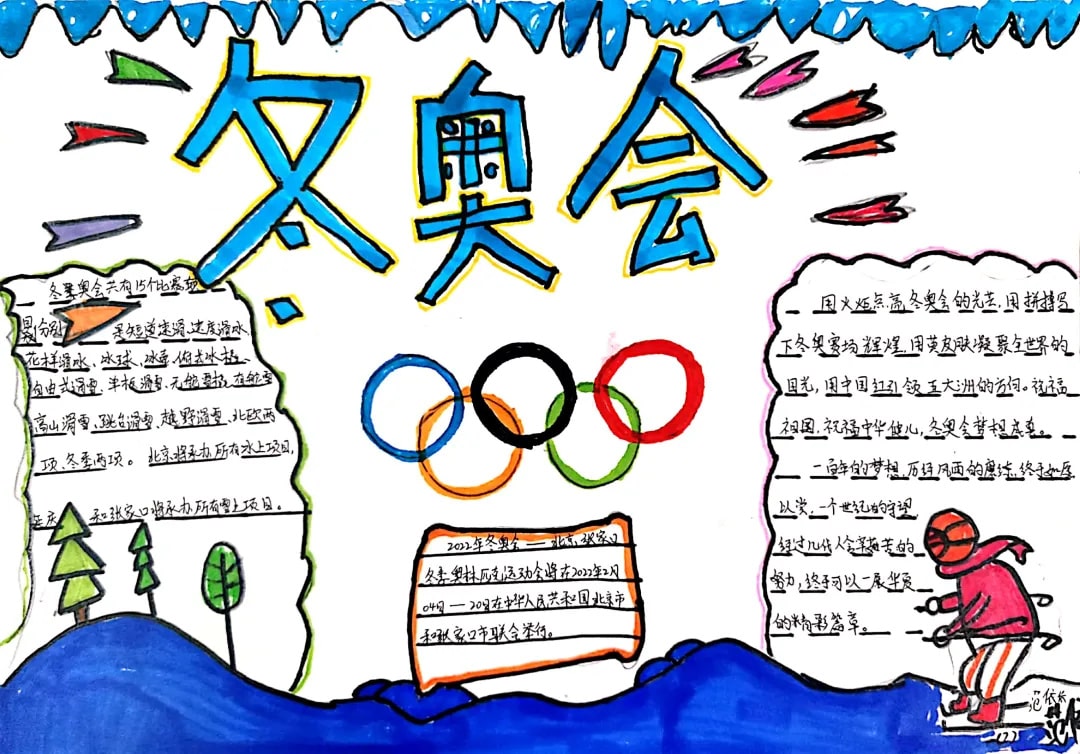 冬奥会
冬季奥会共有15个比赛项
目分别是短道速滑、速度滑冰
花样滑冰、冰球、冰壶、俯式冰橇、
自由式滑雪、单板滑雪、无舵雪橇、有舵雪
高山滑雪、跳台滑雪、越野滑雪、北欧两
项、冬季两项。北京将承办所有冰上项目,
延庆和张家口将承办所有雪上项目。
2022年冬奥会——北京张家口
冬季奥林匹克运动会将在2022年2月
04日—20日在中华人民共和国北京市
和张家口市联合举行。
用火炬点亮冬奥会的光芒,用拼搏写
下冬奥赛场辉煌,用黄皮肤凝聚全世界的
目光,用中国红引领五大洲的方向。祝福
祖国,祝福中华健儿,冬奥会梦想成真。
一百年的梦想,历经风雨的磨练,终于如愿
以尝,一个世纪的守望
经过几代人含辛茹苦的
努力,终于可以一展华夏
的精彩篇章。